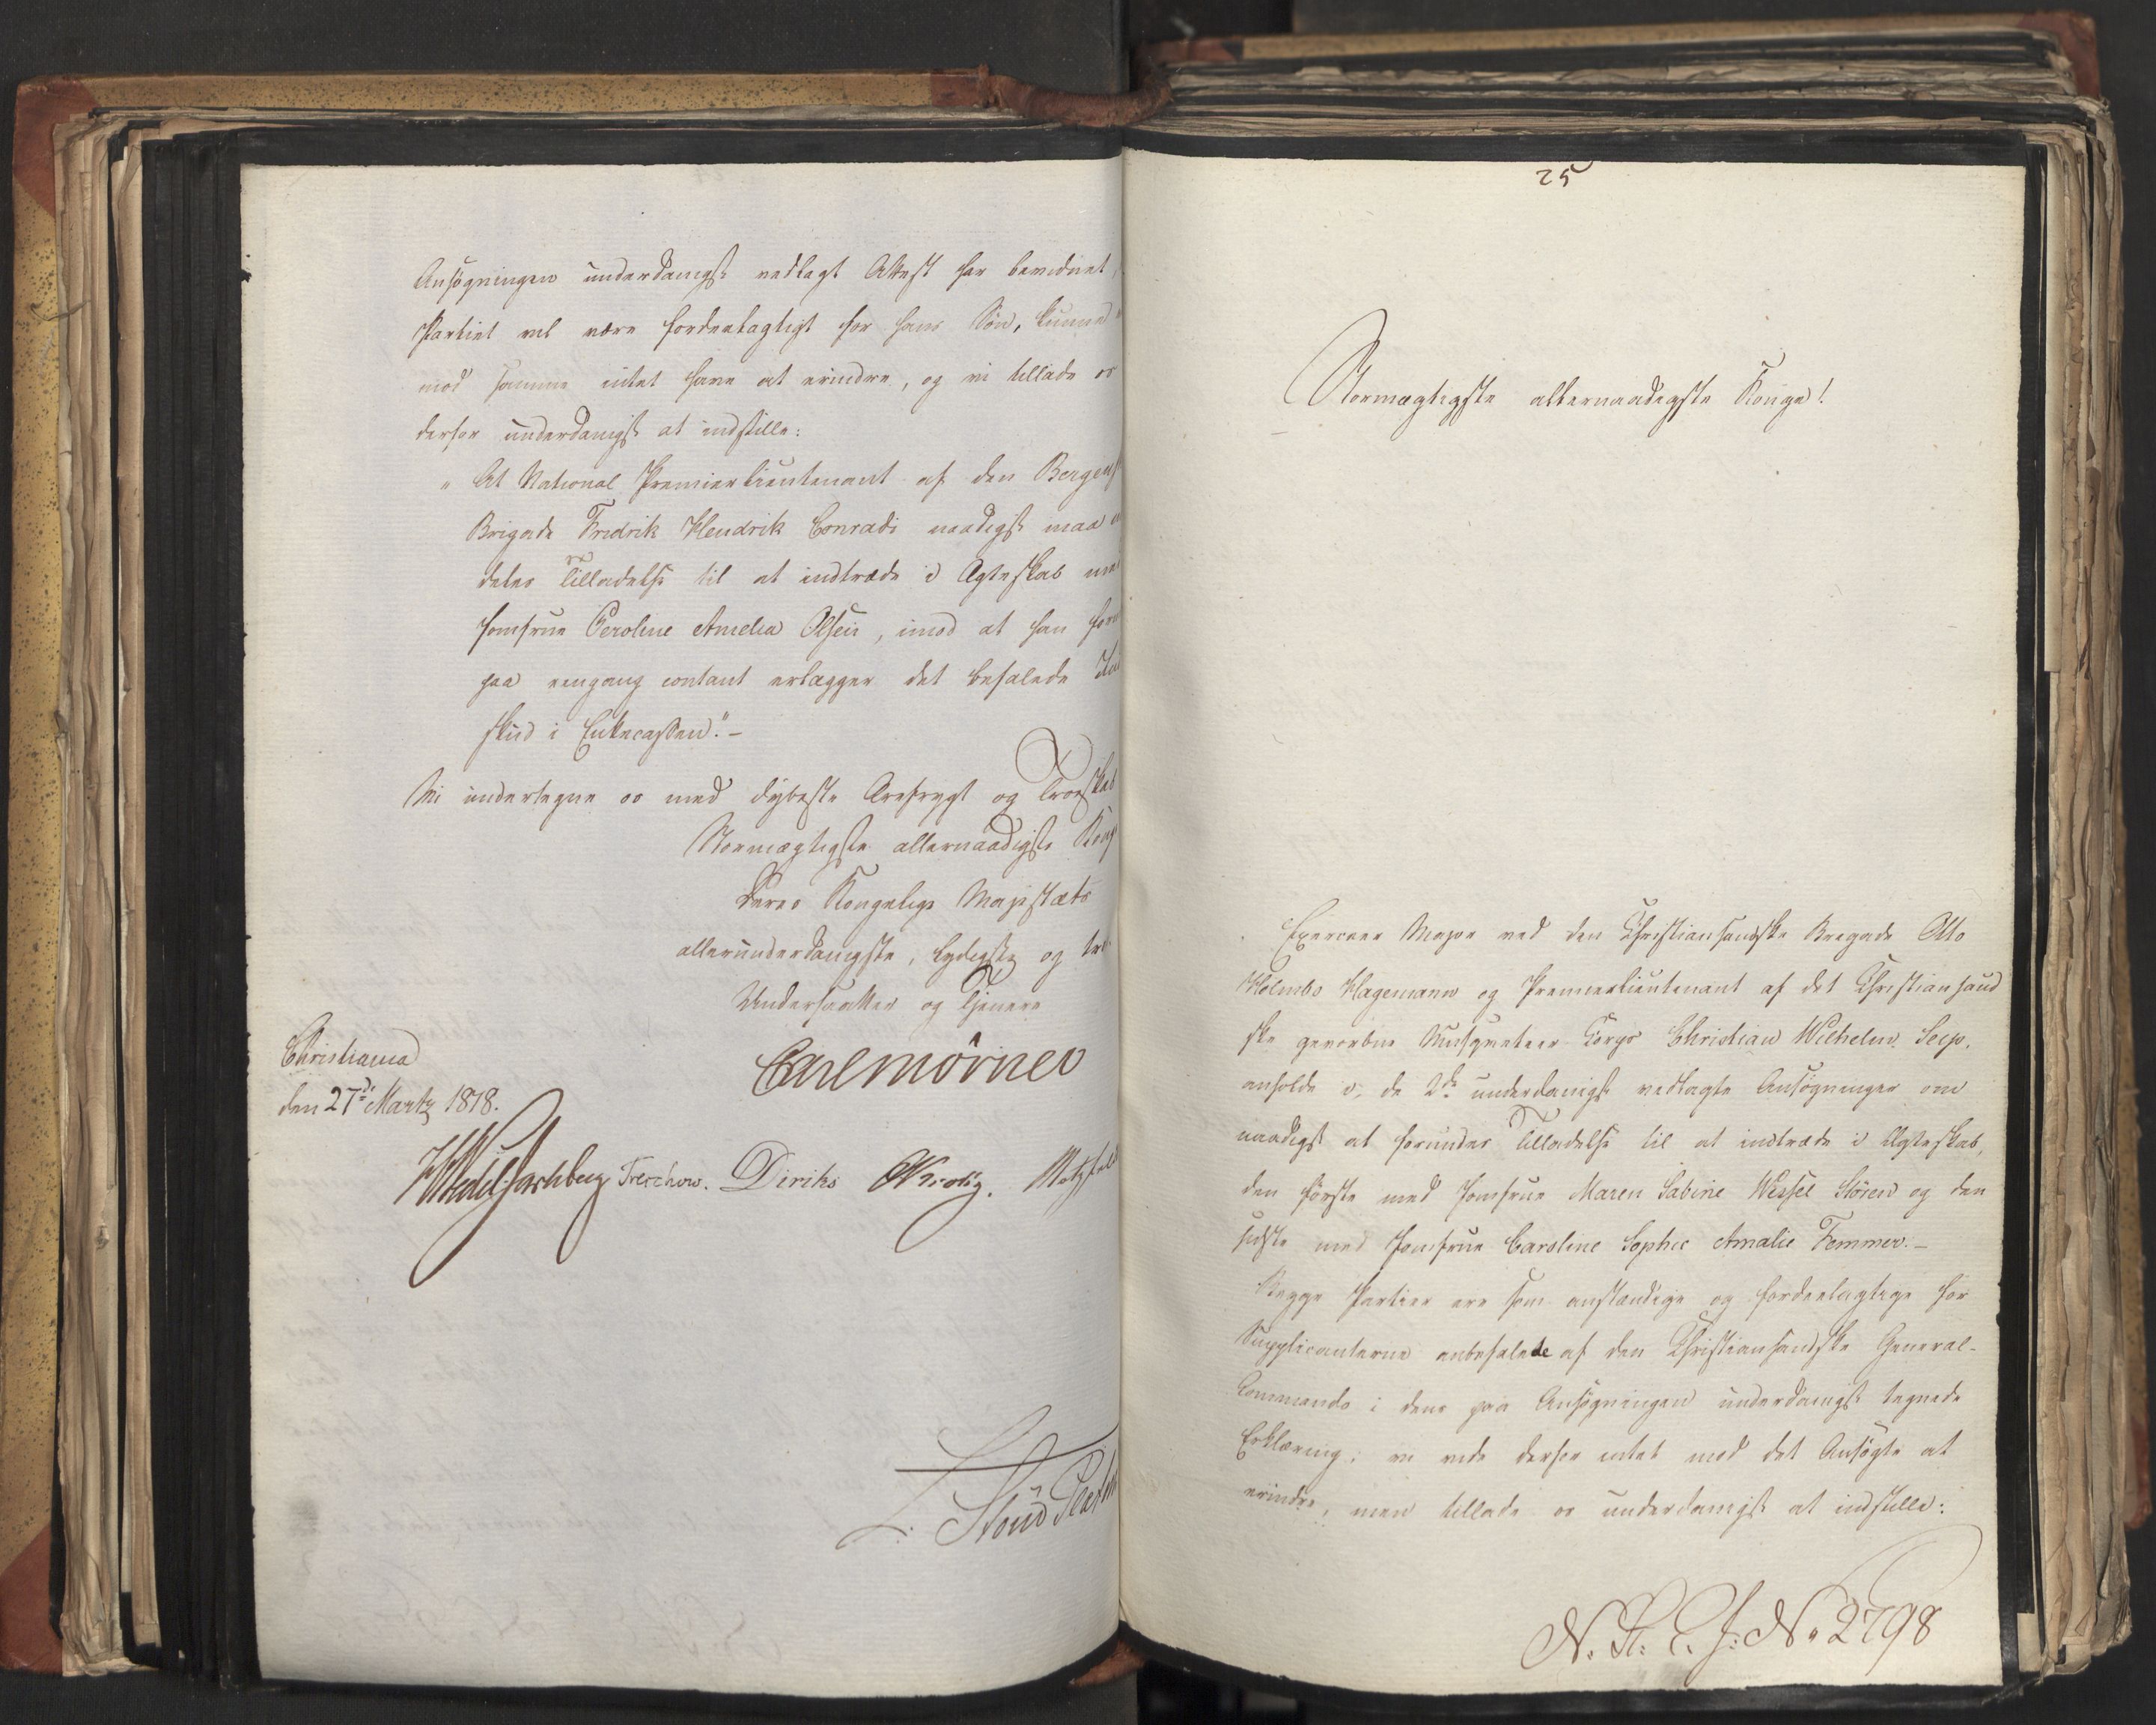 Ansøgningen underdanigst vedlagt Attest har bevidnet,
Partiet vel være fordeelagtigt for hans Søn, kunne
mod samme intet have at erindre, og vi tillade os
derfor underdanigst at indstille:
" At National Premierlieutenant af den Bergensk
Brigade Fredrik Hendrik Conradi naadigst maa
deles Tilladelse til at indtræde i Ægteskab med
Jomfrue Ceroline Amelia Olsen, imod at han
paa eengang contant erlægger det befalede
skud i Enkecassen." -
Vi undertegne os med dybeste Ærefrygt og Troeskab
Stormægtigste allernaadigste
Deres Kongelige Majestæts
allerunderdanigste, lydigste og
Undersaatter og Tjenere
Christiania
den 27de Martz 1818.
Carl Mörner
HWedel Jarlsberg Treschow. Diriks CKrohg. Motzfeldt
L. Stoud Platou
25
Stormægtigste allernaadigste Konge!
Exerceer Major ved den Christiansandske Brigade Otto
Holmbo Hagemann og Premierlieutenant af det Christiansand
ske gevorbne Musqueteer Corps Christian Wilhelm Seip.
anholde i de 2de underdanigst vedlagte Ansøgninger om
naadigst at forundes Tilladelse til at indtræde i Ægteskab,
den første med Jomfrue Maren Sabine Wessel Stören og den
sidste med Jomfrue Caroline Sophie Amalie Femmer. -
Begge Partier ere som anstændige og fordeelagtige for
Supplicanterne anbefalede af den Christiansandske General-
Commando i dens paa Ansøgningen underdanigst tegnede
Erklæring; vi vide derfor intet mod det Ansøgte at
erindre, men tillade os underdanigst at indstille:
N. R. C. J: No 2798